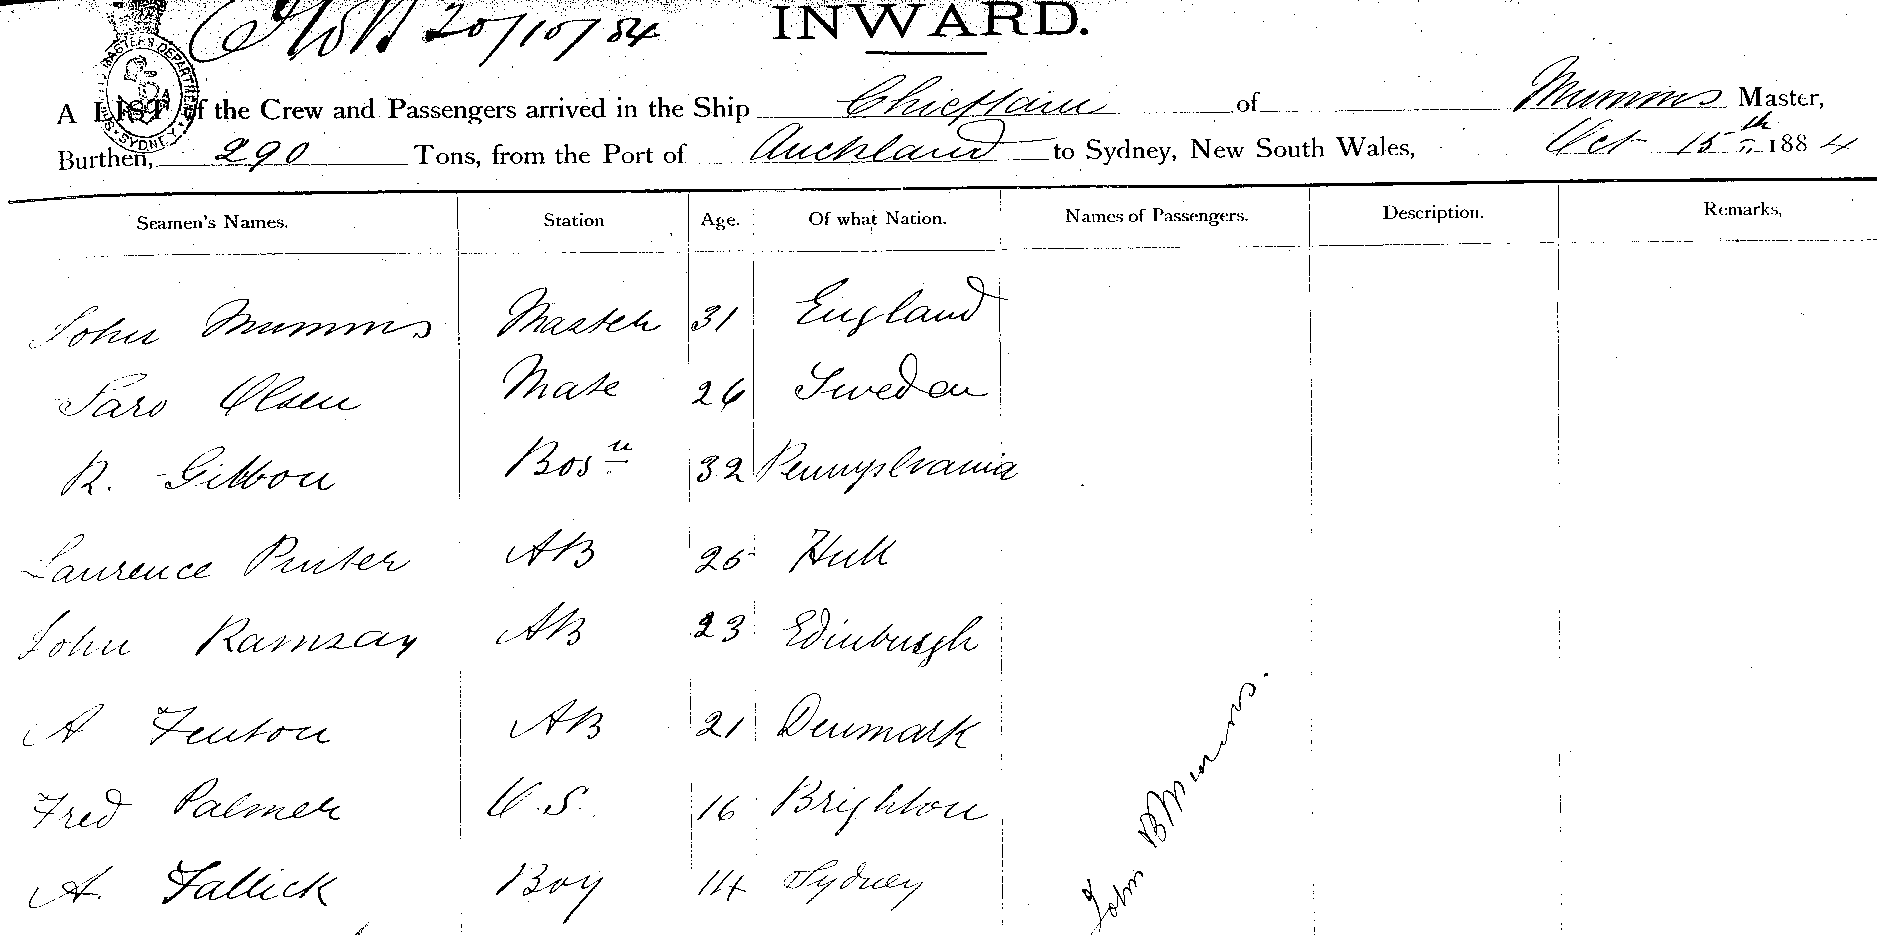 20/10/84 INWARD.
A LIST of the Crew and Passengers arrived in the Ship Chieftain of Mumms Master,
Burthen, 290 Tons, from the Port of Auckland to Sydney, New South Wales, Oct 15th 1884
Seamen's Names. Station Age. Of what Nation. Names of Passengers. Description. Remarks,
John Mumms Master 31 England
Olsen Mate 26 Sweden
R. Gibbon Bosn 32 Pennyslvania
Laurence AB 25 Hull
John Ramsay AB 23 Edinburgh
A Fenton AB 21 Denmark
Fred Palmer O.S. 16 Brighton
A. Tallick Boy 14 Sydney
John B Mumms.
SYDNEY